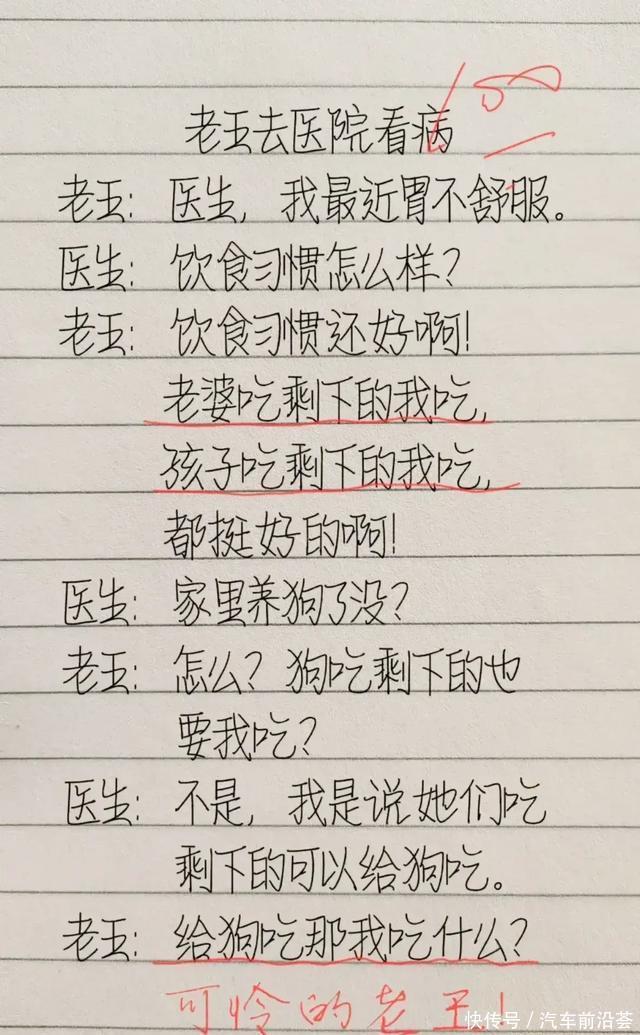 100
老王去医院看病
老王：医生，我最近胃不舒服。
医生：饮食习惯怎么样？
老王：饮食习惯还好啊！
老婆吃剩下的我吃，
孩子吃剩下的我吃，
都挺好的啊！
医生：家里养狗了没？
老王：怎么？狗吃剩下的也
要我吃？
医生：不是，我是说她们吃
剩下的可以给狗吃。
老王：给狗吃那我吃什么？
可怜的老王！
快传号／汽车前沿荟